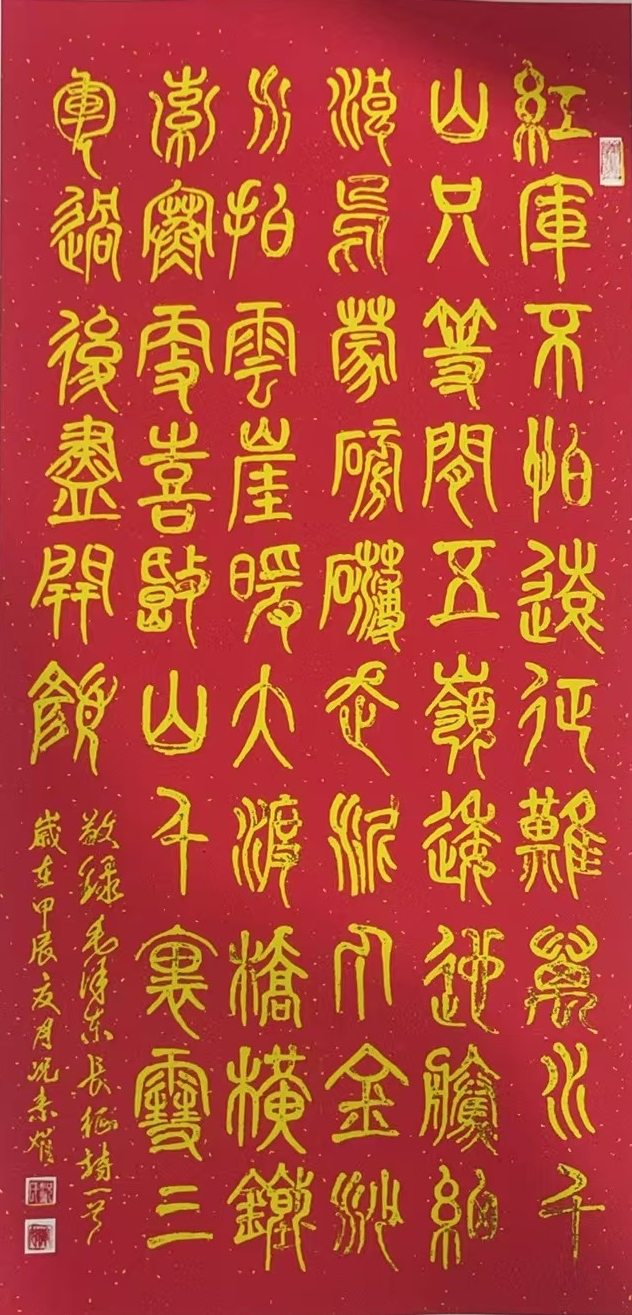 紅軍不怕遠征難萬水千
山只等閒五嶺逶迤騰細
浪烏蒙磅礴走泥丸金沙
水拍雲崖暖大渡橋橫鐵
索寒更喜岷山千裏雪三
軍過後盡開顏
敬錄毛澤東長征詩一首
歲在甲辰夏月